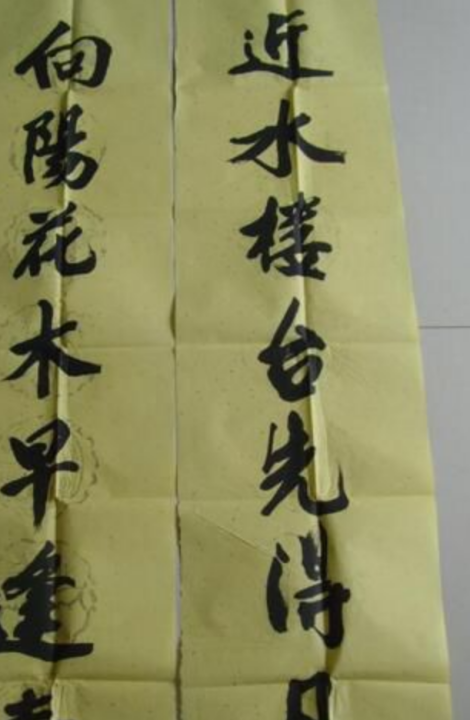 近水樓台先得
向陽花木早逢